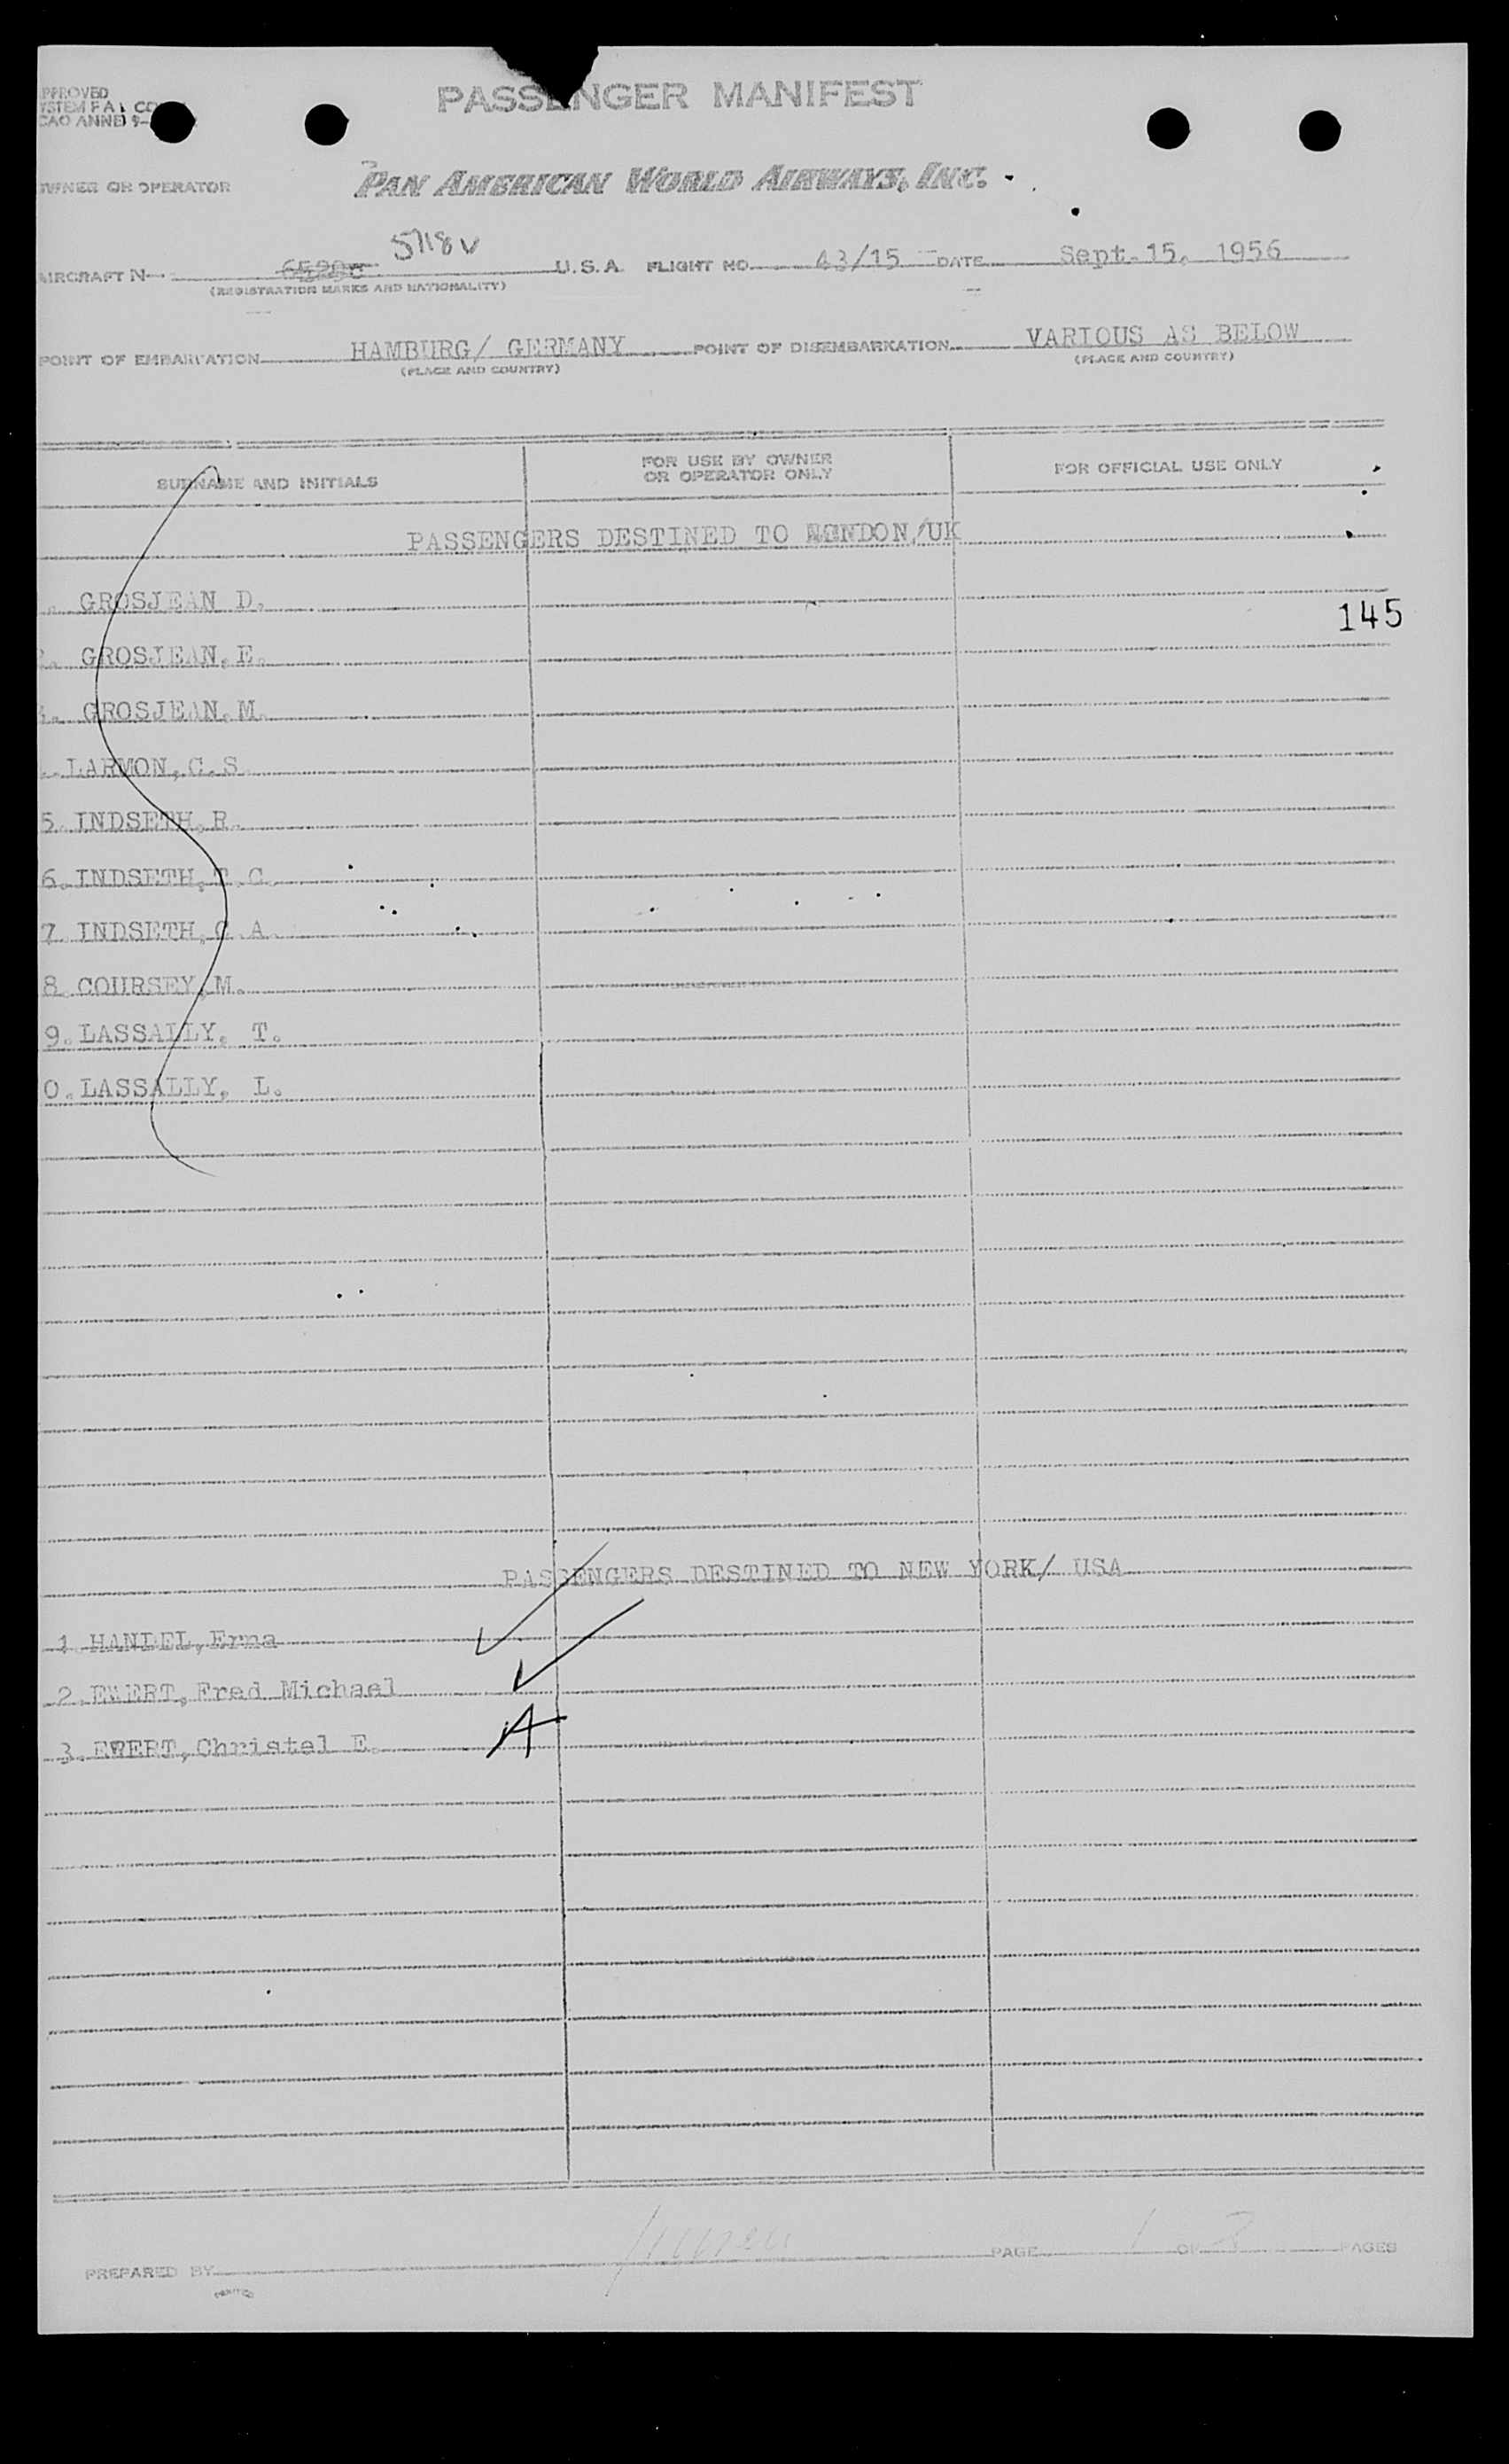 PPROVED
YSTEM F A L CO
CAO ANNEX 9-
PASSENGER MANIFEST
WNER OR OPERATOR
PAN AMERICAN WORLD AIRWAYS, INC.
5118V
AIRCRAFT N U.S.A. FLIGHT NO. 43/15 DATE Sept. 15, 1956
(REGISTRATION MARKS AND NATIONALITY)
POINT OF EMBARKATION HAMBURG/ GERMANY POINT OF DISEMBARKATION VARIOUS AS BELOW
(PLACE AND COUNTRY) (PLACE AND COUNTRY)
SURNAME AND INITIALS
FOR USE BY OWNER
OR OPERATOR ONLY
FOR OFFICIAL USE ONLY
PASSENGERS DESTINED TO LONDON/UK
GROSJEAN D.
145
GROSJEAN, E.
GROSJEAN, M.
LARMON, C.S
5. INDSETH, R.
6. INDSETH, T.C.
7. INDSETH, C.A.
8. COURSEY, M.
9. LASSALLY, T.
0. LASSALLY, L.
PASSENGERS DESTINED TO NEW YORK/ USA
1. HANDEL, Erna
2. EWERT, Fred Michael
3. EWERT, Christel E. A
PREPARED BY PAGE 1 OF 2 PAGES